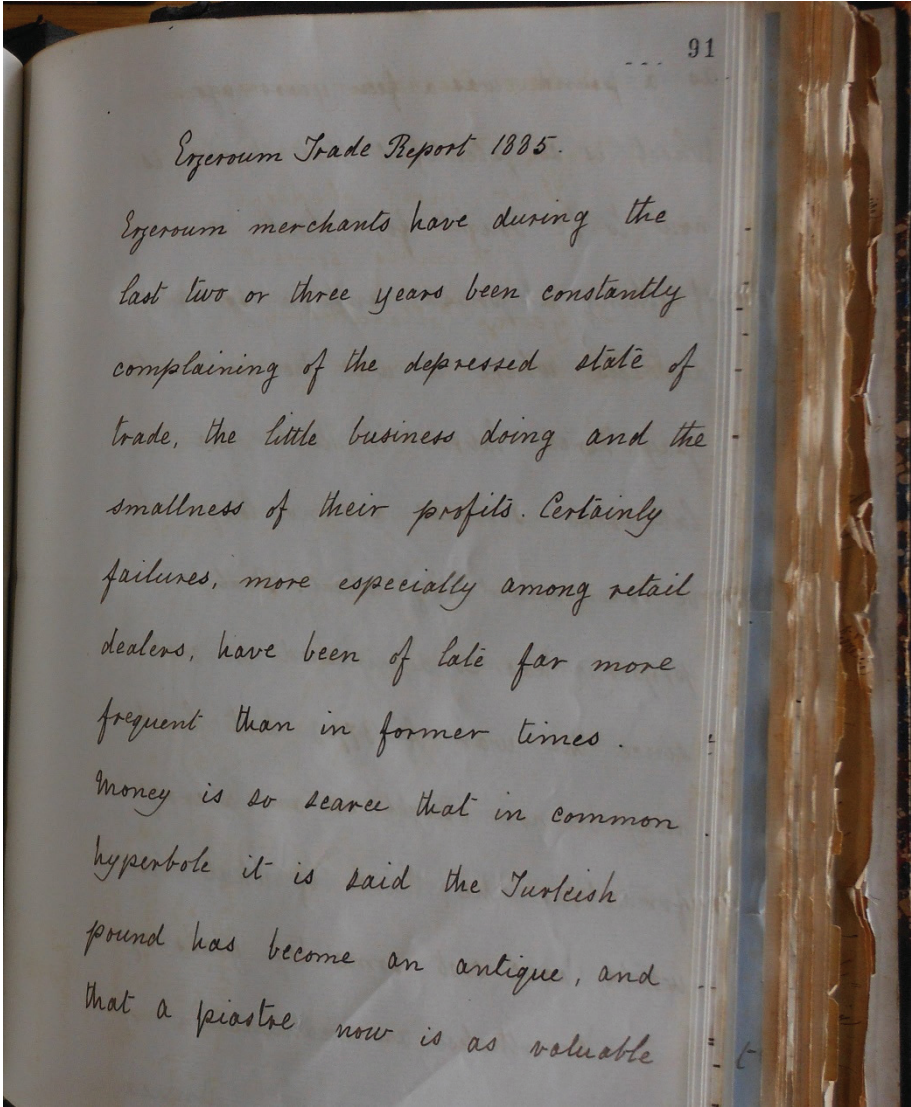 91
Erzeroum Trade Report 1885.
Erzeroum merchants have during the
last two or three years been constantly
complaining of the depressed state of
trade, the little business doing and the
smallness of their profits. Certainly
failures, more especially among retail
dealers, have been of late far more
frequent than in former times.
Money is so scarce that in common
hyperbole it is said the Turkish
pound has become an antique, and
that a piastre now is as valuable